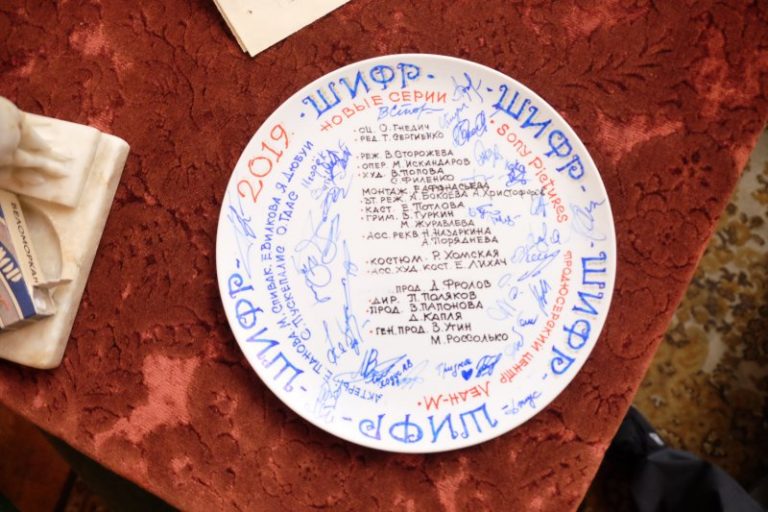 ШИФР · ШИФР · ШИФР · ШИФР · ШИФР
НОВЫЕ СЕРИИ
2019.
Sony Pictures
ПРОДЮСЕРСКИЙ ЦЕНТР ЛЕАН-М
АКТЕРЫ: Е. ПАНОВА М. СПИВАК Е. ВИЛКОВА Я. ДЮБУИ
С. ПУСКЕПАЛИС О. ГААС
· СЦ. О. ГНЕДИЧ
· РЕД. Т. СЕРГИЕНКО
· РЕЖ. В. СТОРОЖЕВА
· ОПЕР. М. ИСКАНДАРОВ
· ХУД. В. ПОПОВА
О. ФИЛЕНКО
МОНТАЖ. Е АФАНАСЬЕВА
· ВТ. РЕЖ. А. БОКОЕВА А. Христофоров
· КАСТ. Е. ПОТЛОВА
· ГРИМ. Б. ГУРКИН
М. ЖУРАВЛЕВА
· АСС. РЕКВ. Н. НАЗАРКИНА
А. ПОРЯДНЕВА
· КОСТЮМ. Р. ХОМСКАЯ
· АСС. ХУД. КОСТ. Е. ЛИХАЧ
ПРОД. Д. ФРОЛОВ
· ДИР. П. ПОЛЯКОВ
· ПРОД. В. ПАПОНОВА
Д. КАПЛЯ
· ГЕН. ПРОД. В. УТИН
М. РОССОЛЬКО
БЕЛОМОРКАНАЛ